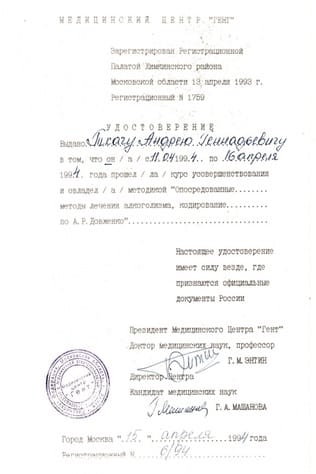 МЕДИЦИНСКИЙ ЦЕНТР "ГЕНТ"
Зарегистрирован Регистрационной
Палатой Химкинского района
Московской области 13 апреля 1993 г.
Регистрационный N 1759
УДОСТОВЕРЕНИЕ
Выдано Ткачу Андрею Геннадьевичу
в том, что он / а / с 11.04 1994.. по 16 апреля
1994. года прошел / ла / курс усовершенствования
и овладел / а / методикой "Опосредованные........
методы лечения алкоголизма, кодирование.....
по А.Р.Довженко"..............................
Настоящее удостоверение
имеет силу везде, где
признаются официальные
документы России
Президент Медицинского Центра "Гент"
Доктор медицинских наук, профессор
Г.М.ЭНТИН
Директор Центра
Кандидат медицинских наук
Г.А.МАШАНОВА
Город Москва "15." апреля 1994 года
Регистрационный N 6/94